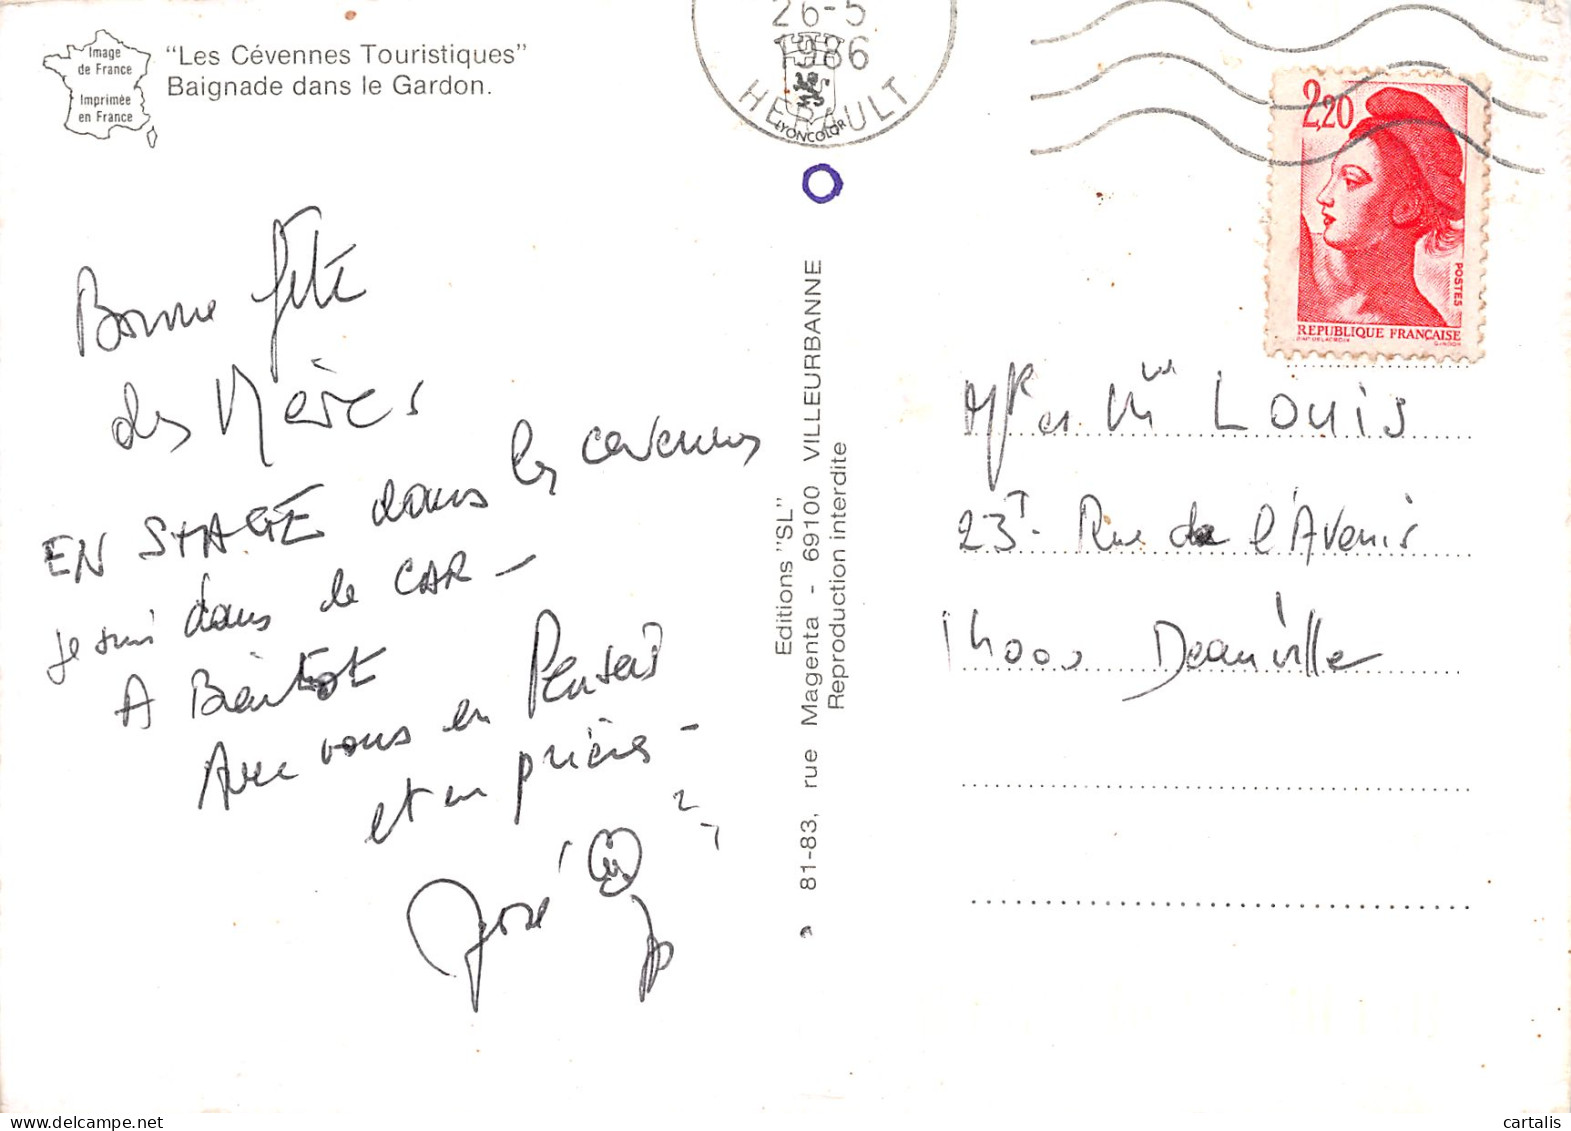 Image
de France
Imprimée
en France
"Les Cévennes Touristiques"
Baignade dans le Gardon.
26-5
1986
HERAULT
LYONCOLOR
2,20
POSTES
REPUBLIQUE FRANÇAISE
Bonne fête
des Mères
EN STAGE dans les cevennes
je suis dans le CAR -
A Bientot
Avec vous en Pensée
et en prières -
José
Editions "SL"
81-83, rue Magenta - 69100 VILLEURBANNE
Reproduction interdite
Mr et Mme LOUIS
23T. Rue de l'Avenir
14000 Deauville
cartalis